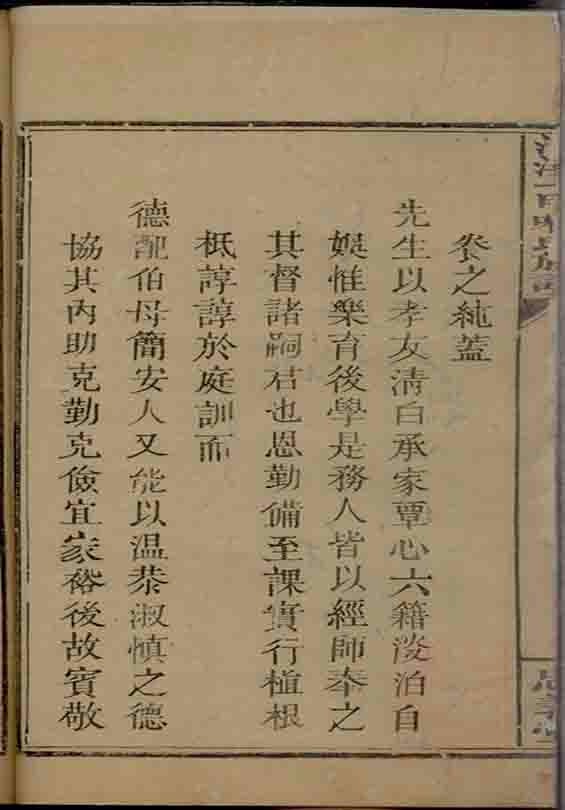 劵之純蓋
先生以孝友清白承家覃心六籍淡泊自
娛惟樂育後學是務人皆以經師奉之
其督諸嗣君也恩勤備至課實行植根
柢諄諄於庭訓而
德配伯母簡安人又能以温恭淑慎之德
協其內助克勤克儉宜家裕後故賓敬